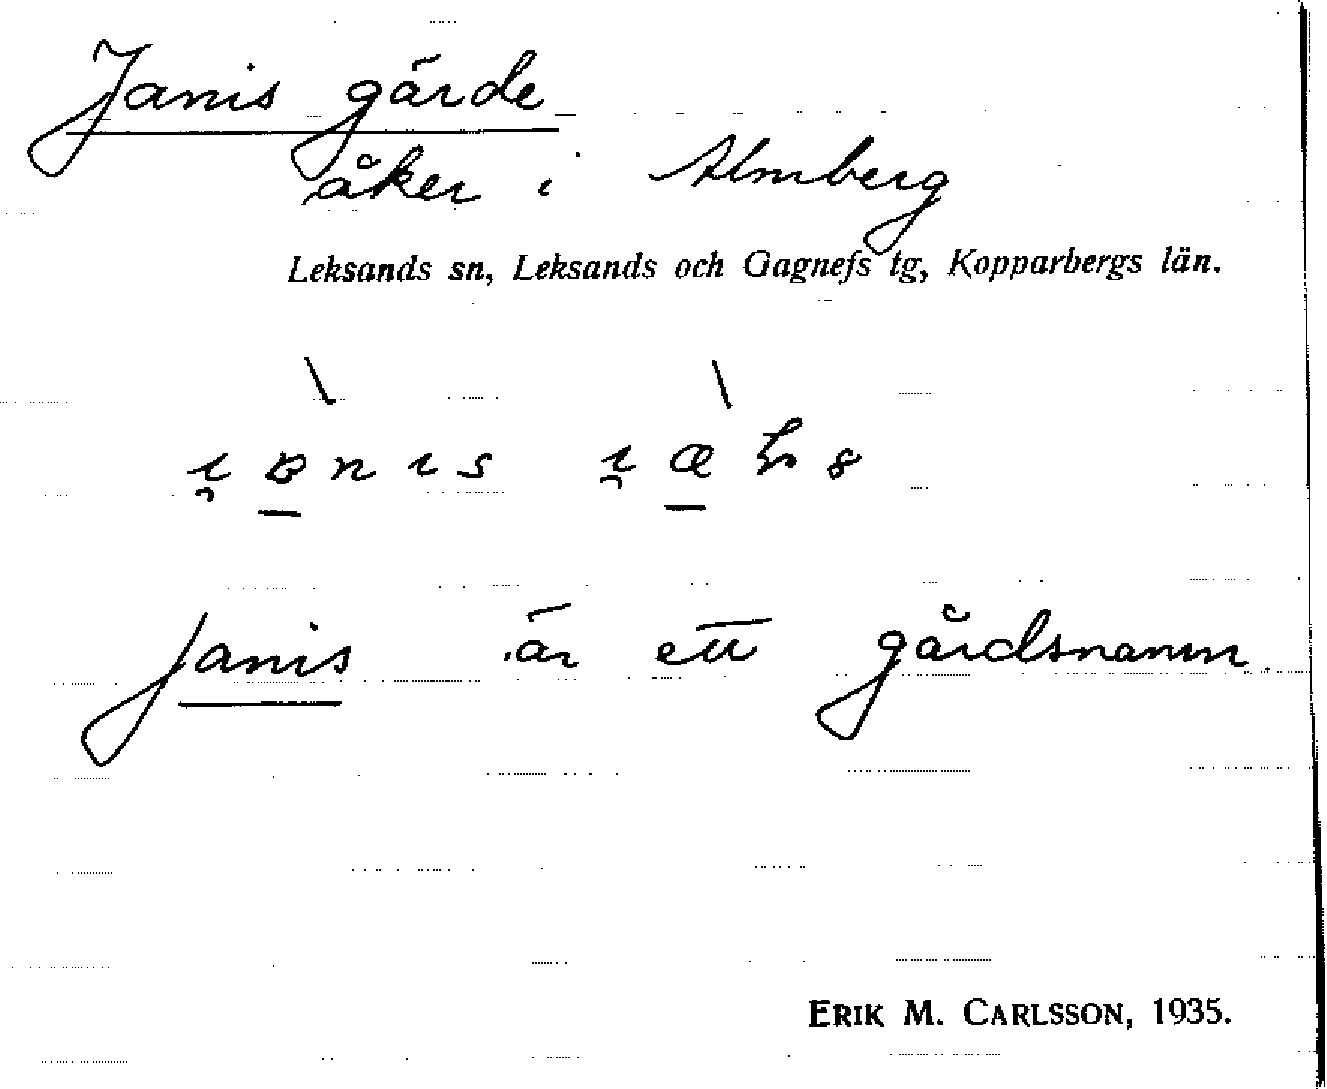 Janis gärde
åker i Almberg
Leksands sn, Leksands och Gagnefs tg, Kopparbergs län.
Janis är ett gårdsnamn.
ERIK M. CARLSSON, 1935.